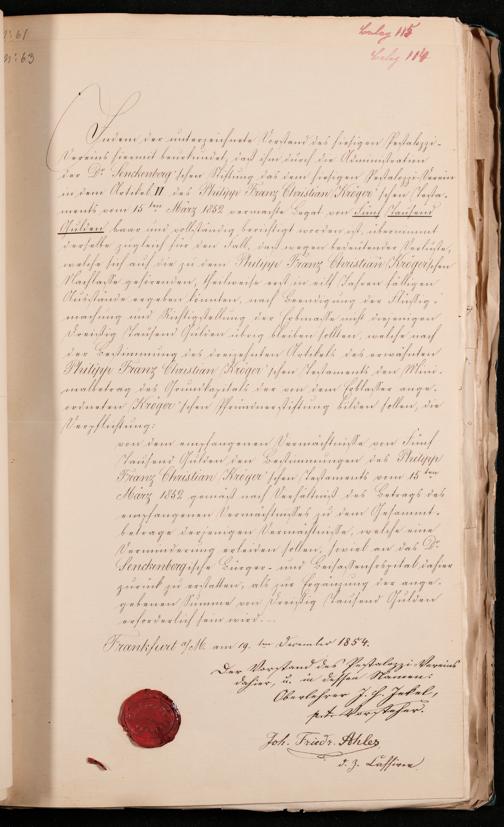 N: 61
N: 63
Beleg 115
Beleg 114
Indem der unterzeichnete Vorstand des hiesigen Pestalozzi-
Vereins hiermit beurkundet, daß ihm durch die Administration
der Dr. Senckenberg'schen Stiftung das dem hiesigen Pestalozzi-Verein
in dem Artikel II des Philipp Franz Christian Kröger'schen Testa-
ments vom 15ten März 1852 vermachte Legat von Fünf Tausend
Gulden baar und vollständig berichtigt worden ist, übernimmt
derselbe zugleich für den Fall, daß wegen bedeutender Verluste,
welche sich auf die zu dem Philipp Franz Christian Kröger'schen
Nachlasse gehörenden, theilweise erst in acht Jahren fälligen
Ausstände ergeben könnten, nach Beendigung der Flüssig-
machung und Richtigstellung der Erbmasse nicht diejenigen
Dreißig Tausend Gulden übrig bleiben sollten, welche nach
der Bestimmung des dreizehnten Artikels des erwähnten
Philipp Franz Christian Kröger'schen Testaments den Mini-
malbetrag des Grundkapitals der von dem Erblasser ange-
ordneten Kröger'schen Pfründnerstiftung bilden sollen, die
Verpflichtung:
von dem empfangenen Vermächtnisse von Fünf
Tausend Gulden den Bestimmungen des Philipp
Franz Christian Kröger'schen Testaments vom 15ten
März 1852 gemäß nach Verhältniß des Betrags des
empfangenen Vermächtnisses zu dem Gesammt-
betrage derjenigen Vermächtnisse, welche eine
Verminderung erleiden sollen, soviel an das Dr.
Senckenbergische Bürger- und Beisassenhospital dahier
zurück zu erstatten, als zur Ergänzung der ange-
gebenen Summe von Dreißig Tausend Gulden
erforderlich sein wird.
Frankfurt a/M. am 19. ten December 1854.
Der Vorstand des Pestalozzi-Vereins
dahier, u. in dessen Namen:
Oberlehrer J. H. Jekel,
p.t. Vorsteher.
Joh. Friedr. Ahles
d. Z. Cassirer